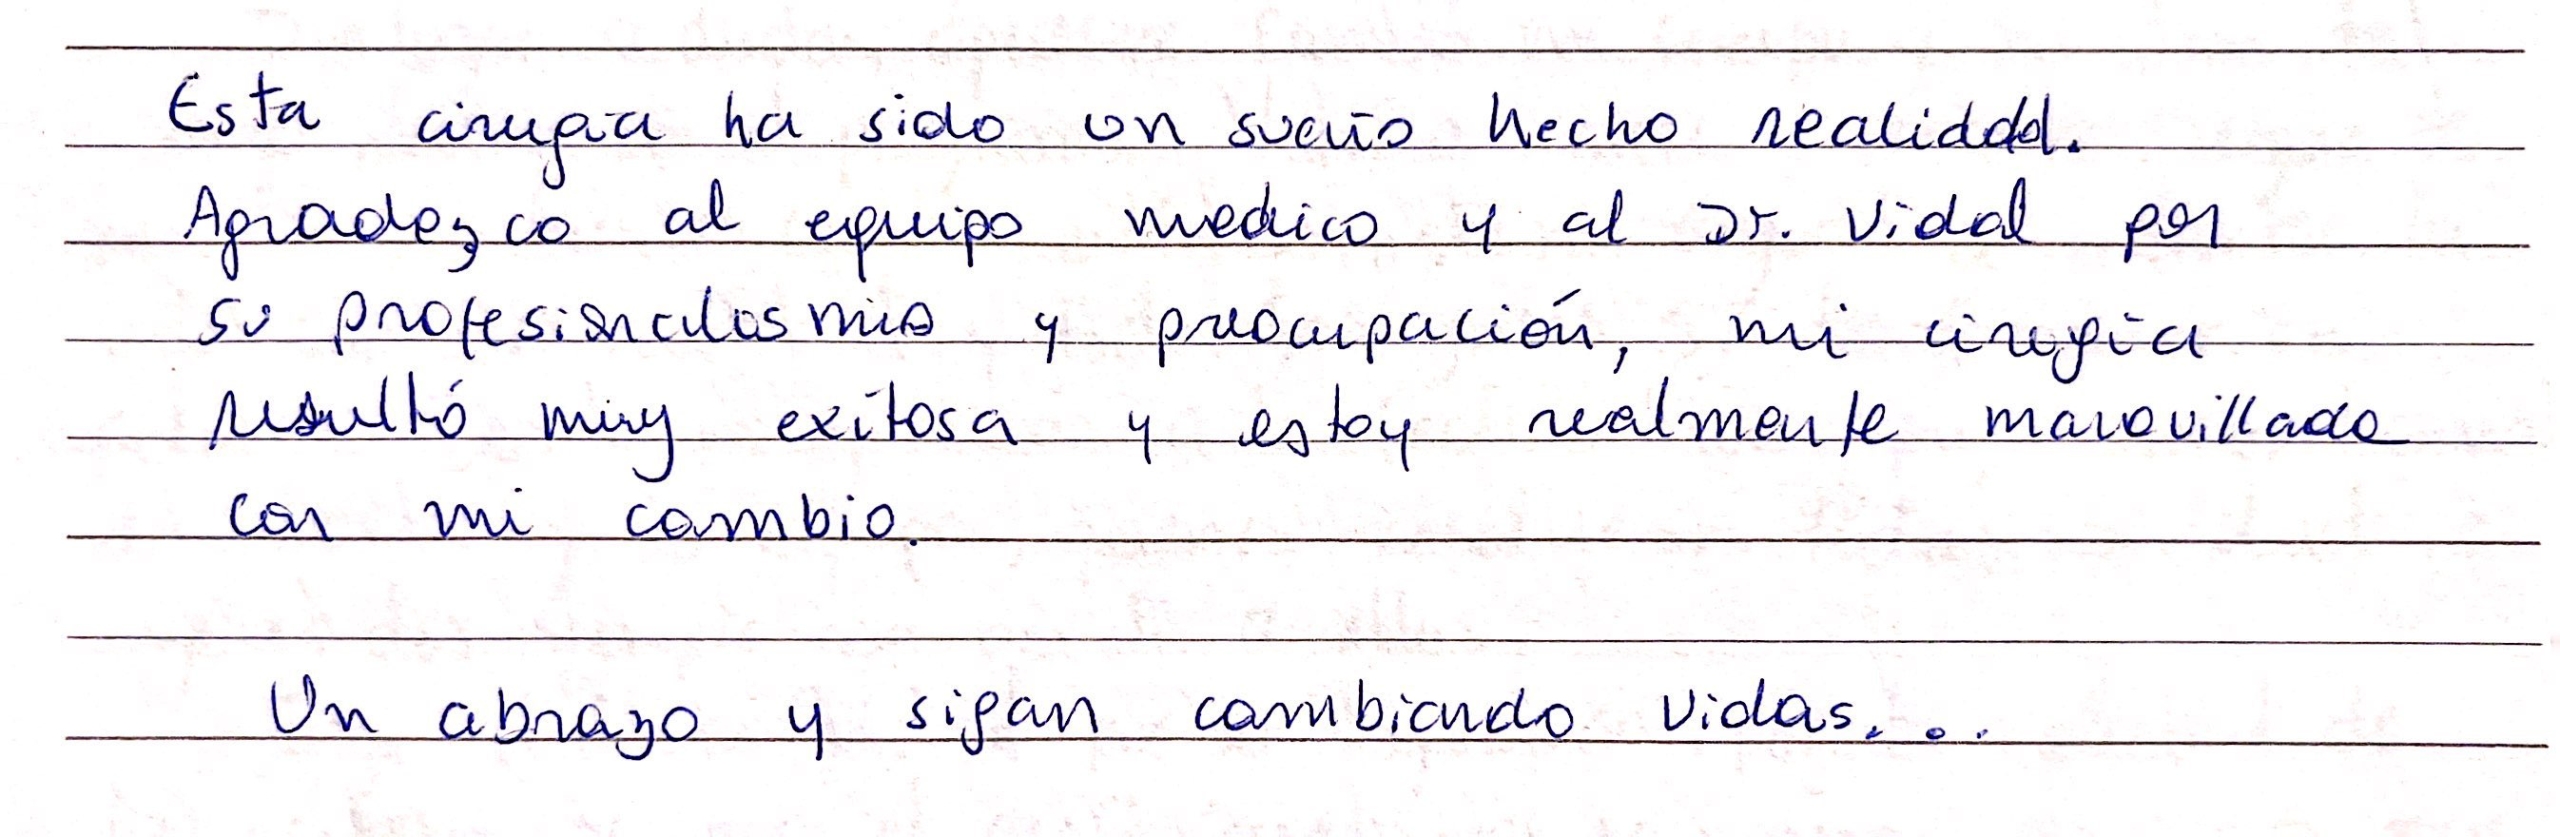 Esta cirugía ha sido un sueño hecho realidad.
Agradezco al equipo medico y al Dr. Vidal por
su profesionalosmio y preocupación, mi cirugía
resultó muy exitosa y estoy realmente maravillado
con mi cambio.
Un abrazo y sigan cambiando vidas...